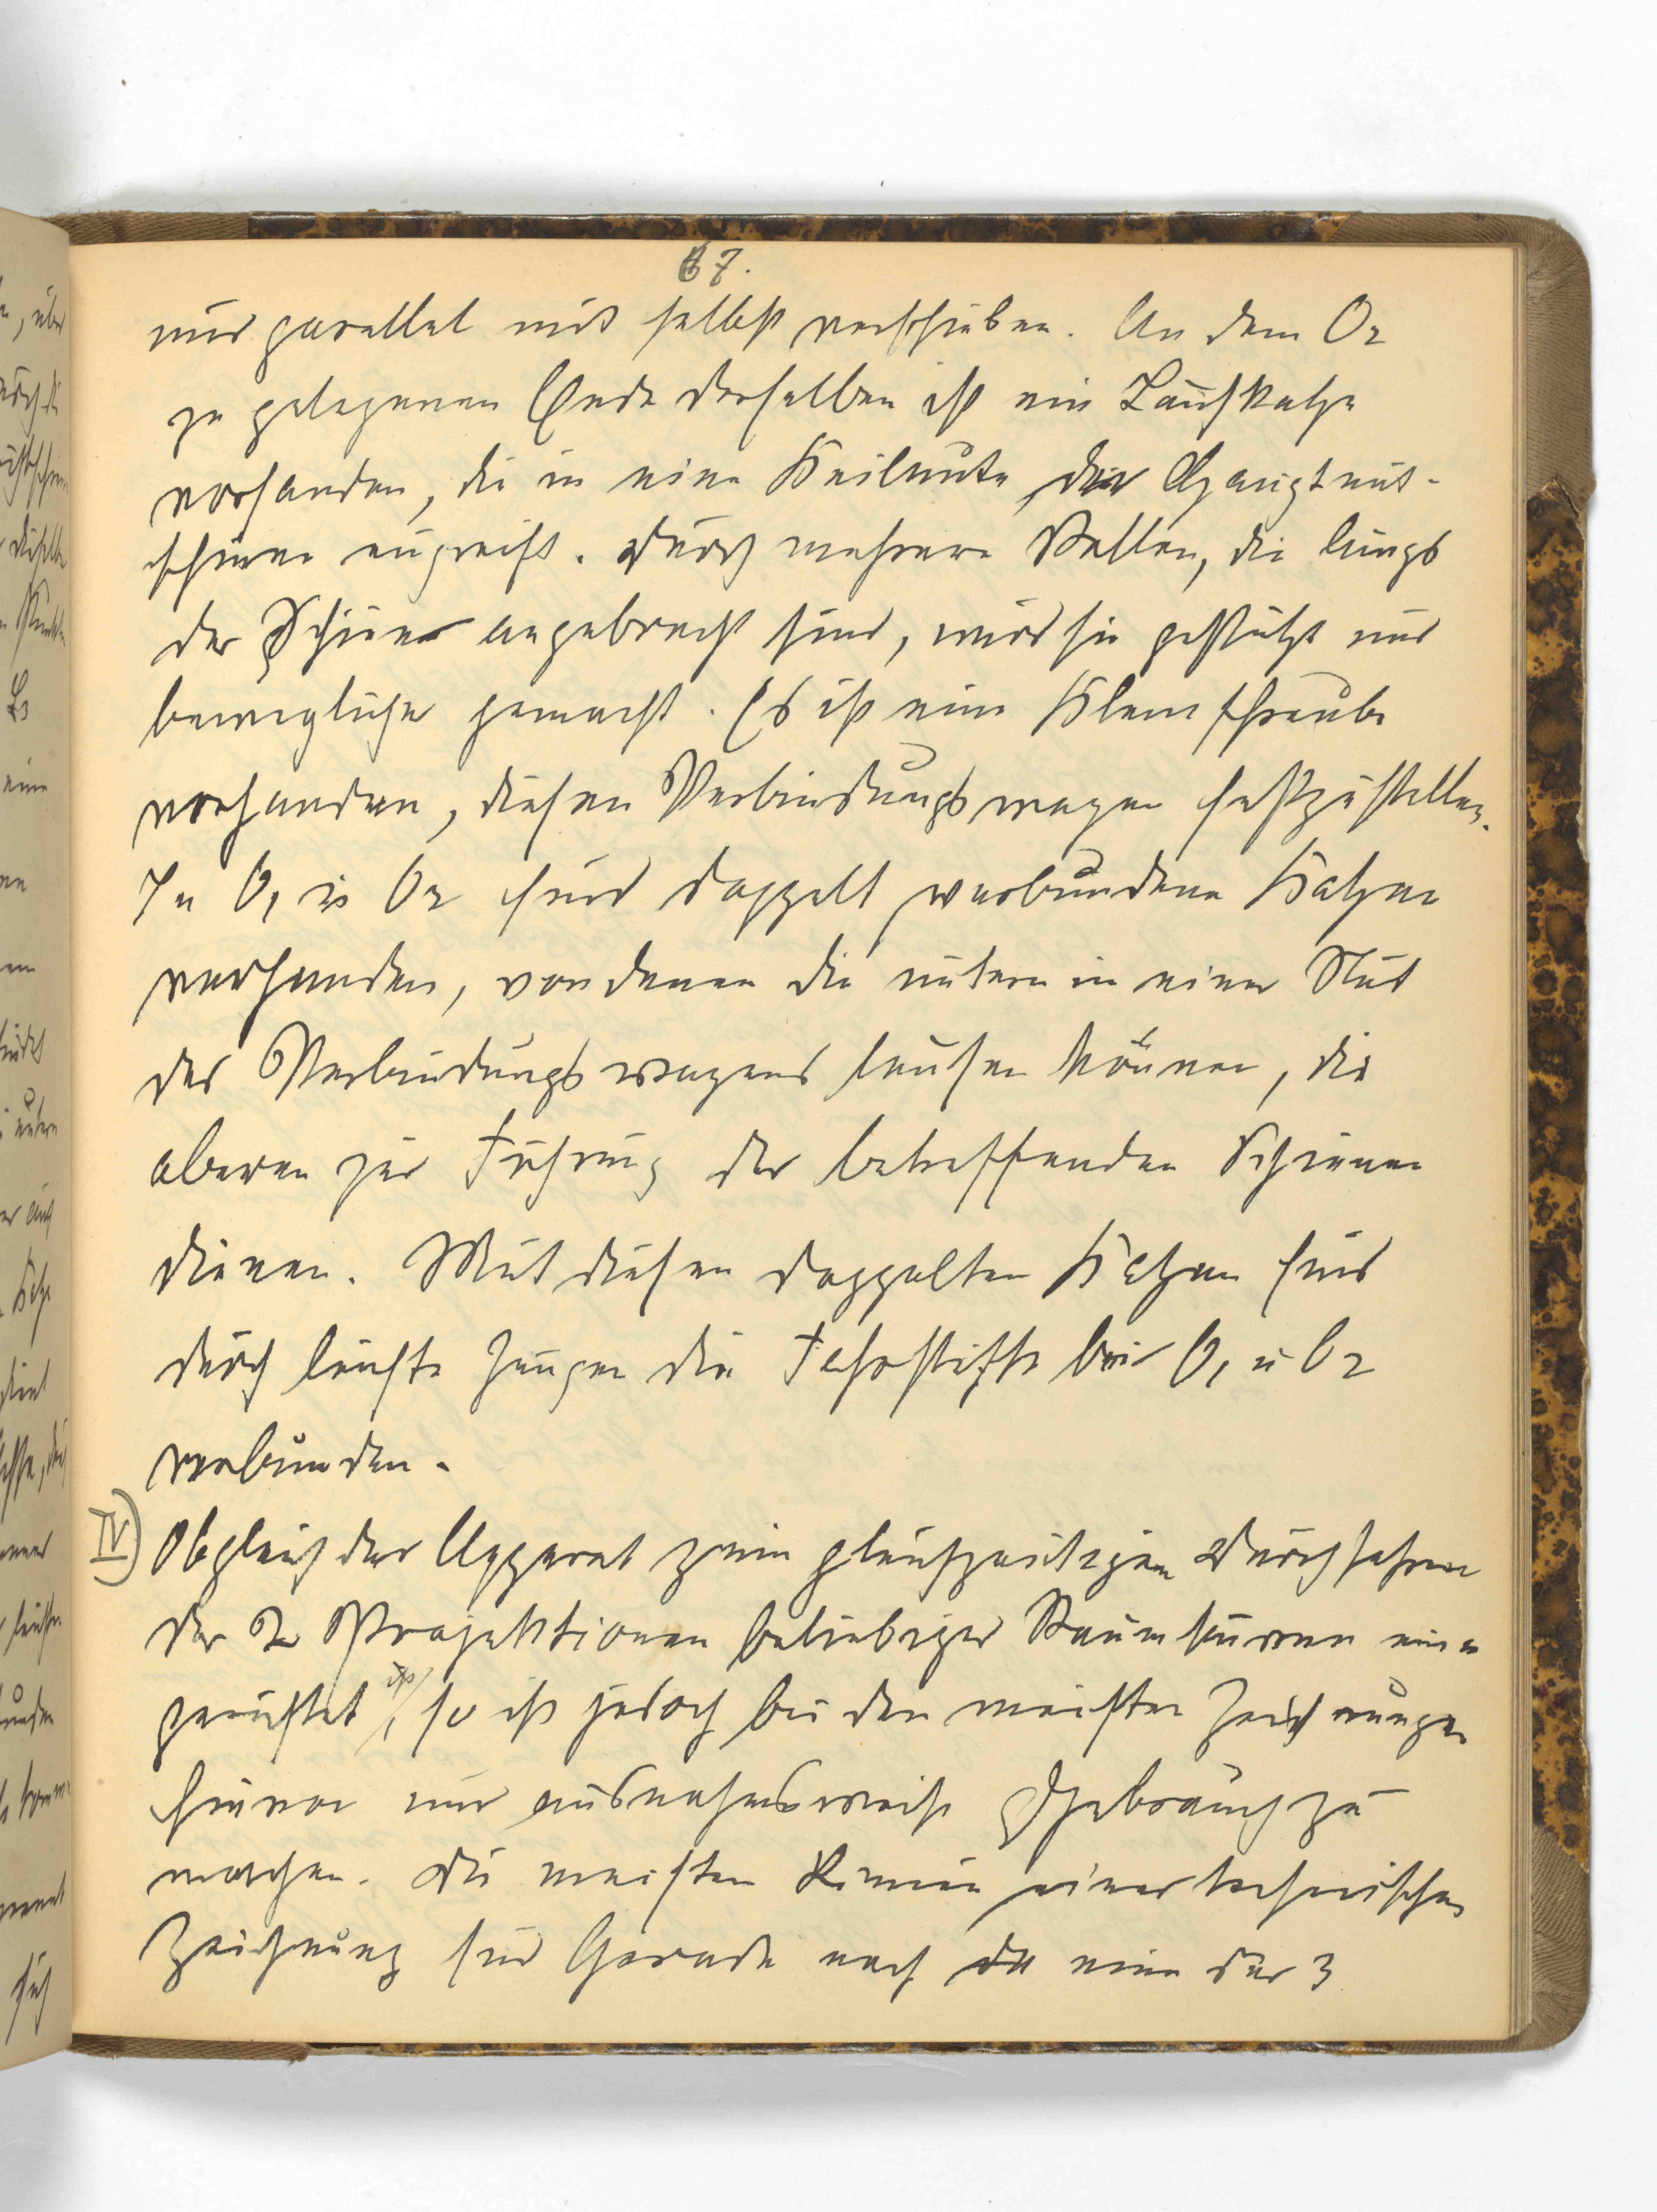 67.
nur parallel mit selbst verschieben. An dem O2
zu gelegenen Ende derselben ist ein Laufkatze
vorhanden, die in eine Keilnute der Hauptnut-
schiene eingreift. Durch mehrere Rollen, die längs
der Schiene angebracht sind, wird sie gestützt und
beweglicher gemacht. Es ist eine Klemschraube
vorhanden, diesen Verbindungswagen festzustellen.
In O1 u O2 sind doppelt verbundene Katzen
vorhanden, von denen die untern in einer Nut
des Verbindungswagens laufen können, die
oberen zur Führung der betreffenden Schienen
dienen. Mit diesen doppelten Katzen sind
durch leichte Zungen die Fahrstifte bei O1 u O2
verbunden.
IV) Obgleich der Apparat zum gleichzeitigen Durchfahren
der 2 Projektionen beliebiger Raumkurven ein-
gerichtet ist, so ist jedoch bei den meisten Zeichnungen
hiervon nur ausnahmsweise Gebrauch zu
machen. Die meisten Linien einer technischen
Zeichnung sind Gerade nach eine der 3